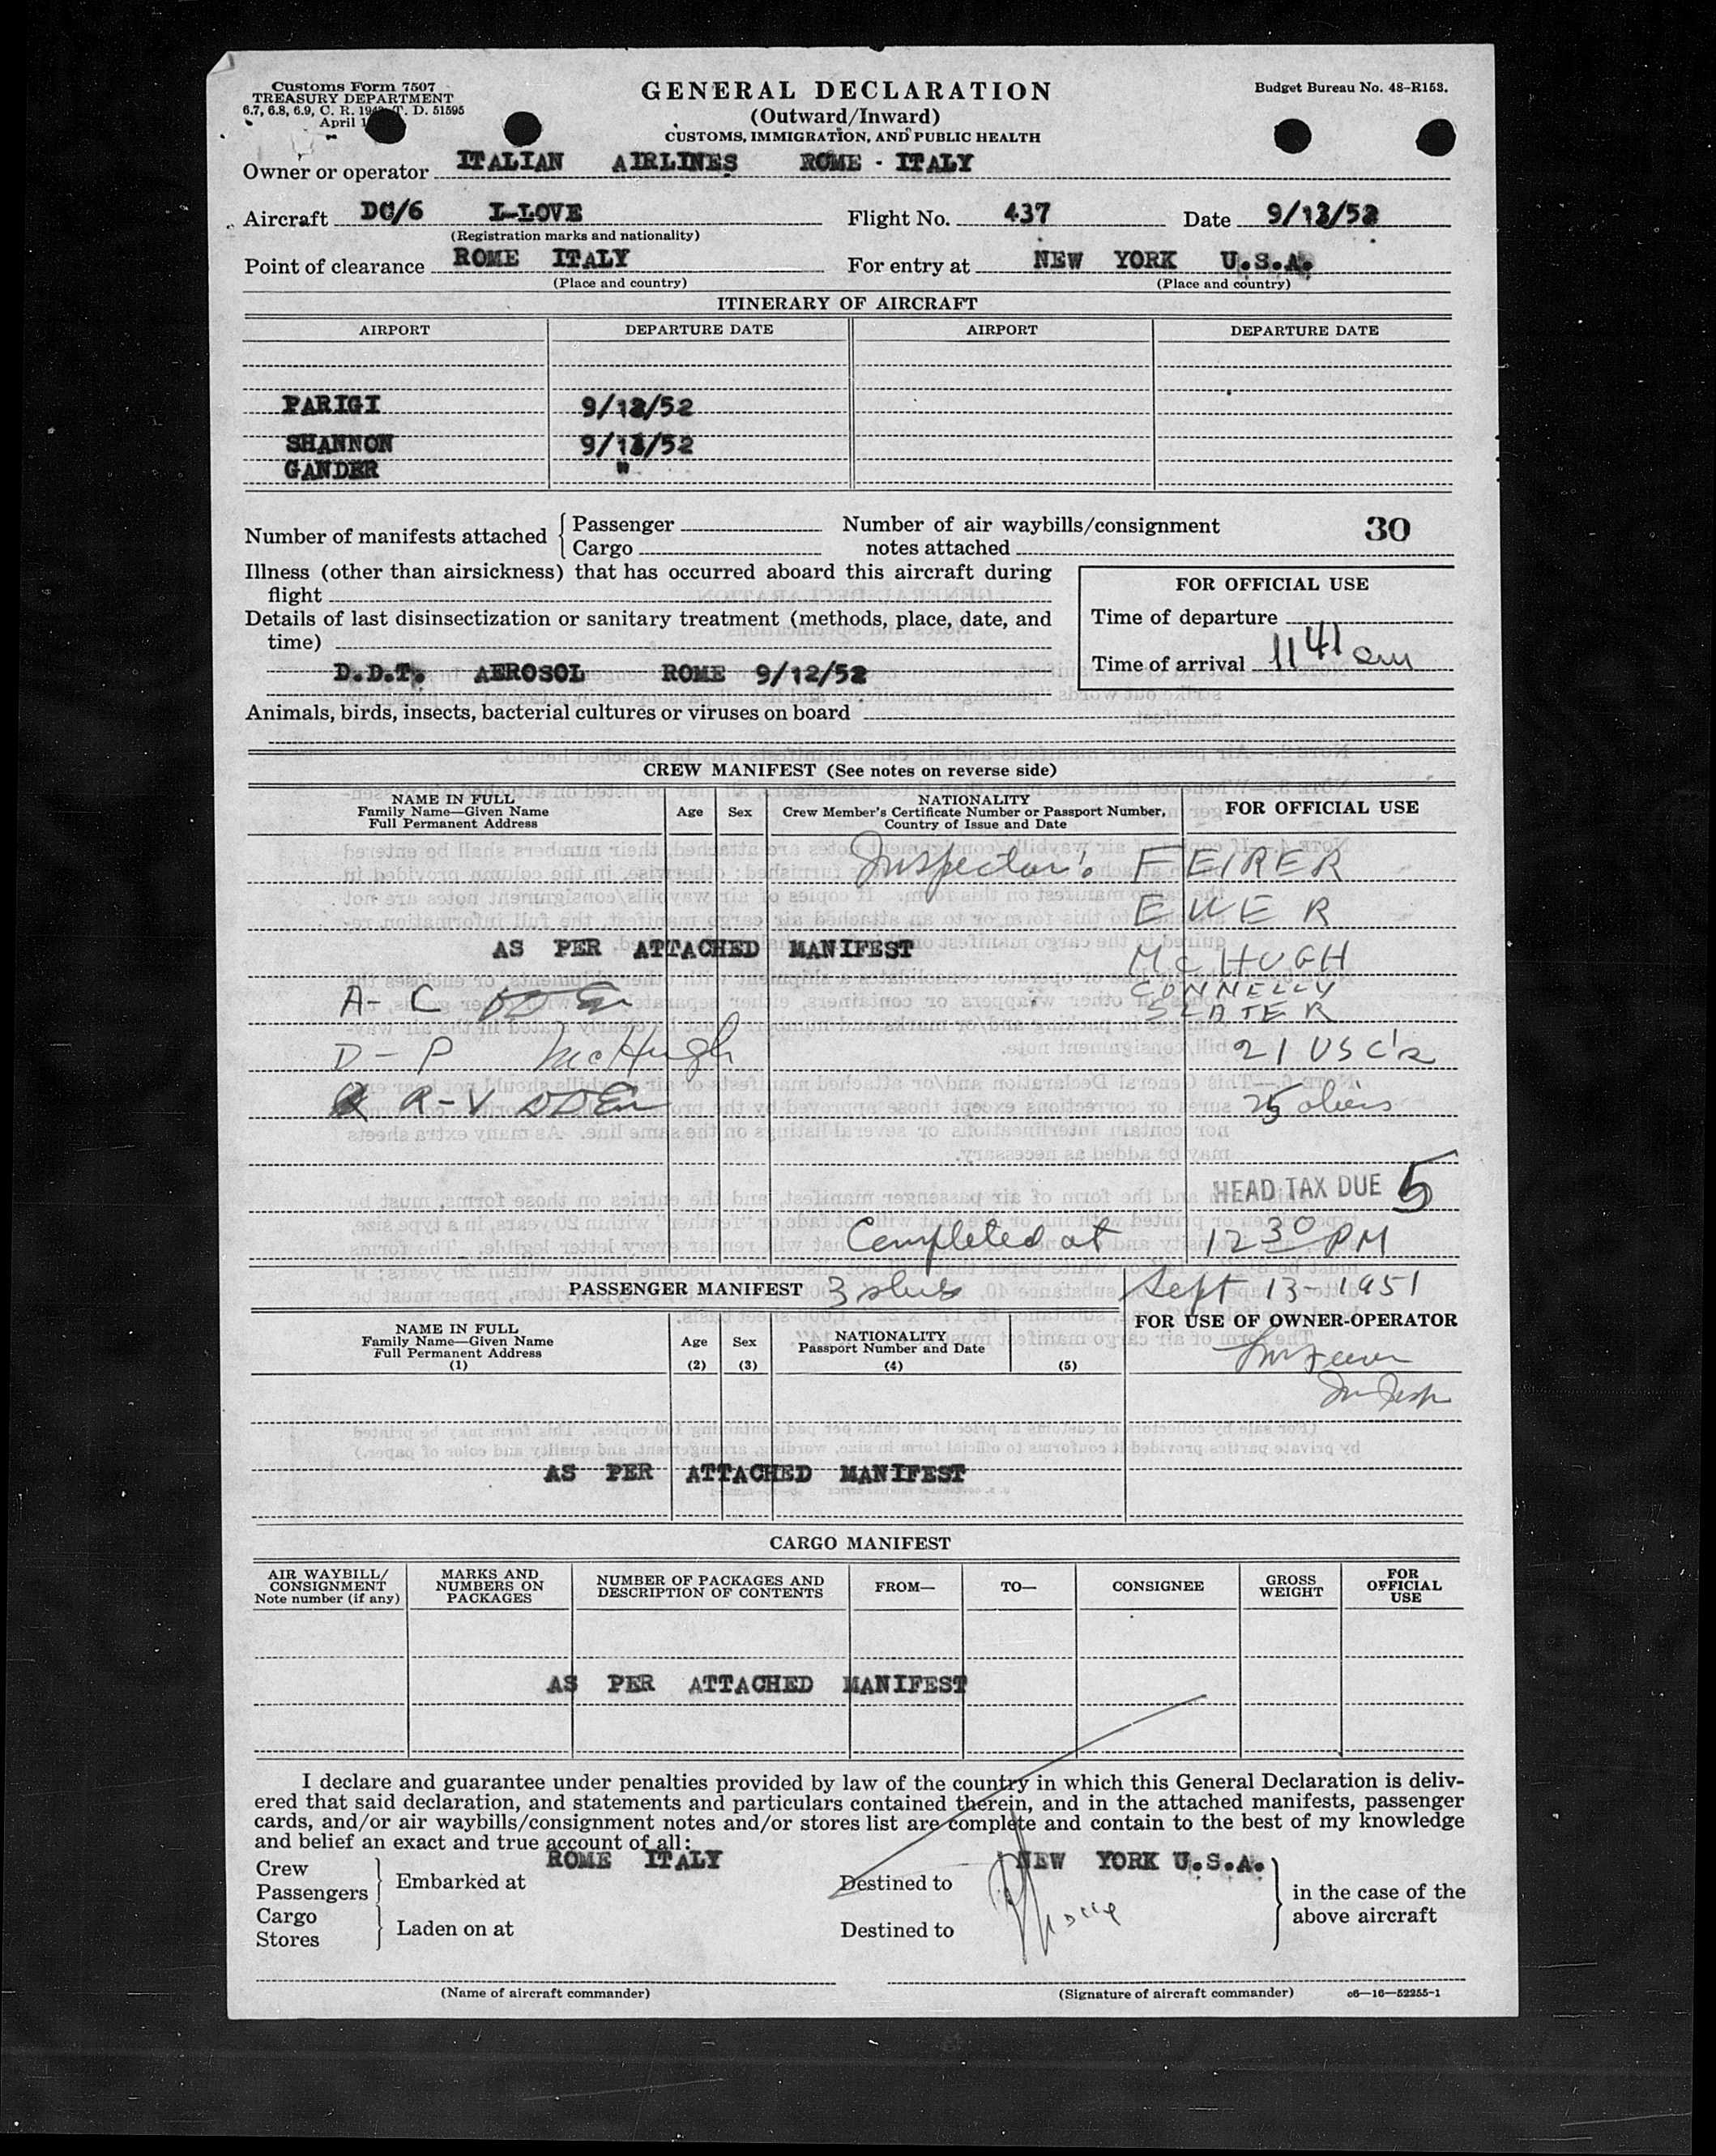 Customs Form 7507
TREASURY DEPARTMENT
6.7, 6.8, 6.9, C. R. 1943, T. D. 51595
April
GENERAL DECLARATION
(Outward/Inward)
CUSTOMS, IMMIGRATION, AND PUBLIC HEALTH
Budget Bureau No. 48-R153.
Owner or operator ITALIAN AIRLINES ROME - ITALY
Aircraft DC/6 I-LOVE Flight No. 437 Date 9/13/52
(Registration marks and nationality)
Point of clearance ROME ITALY For entry at NEW YORK U.S.A.
(Place and country) (Place and country)
ITINERARY OF AIRCRAFT
AIRPORT DEPARTURE DATE AIRPORT DEPARTURE DATE
PARIGI 9/12/52
SHANNON 9/13/52
GANDER "
Number of manifests attached { Passenger Number of air waybills/consignment 30
Cargo notes attached
Illness (other than airsickness) that has occurred aboard this aircraft during
flight
Details of last disinsectization or sanitary treatment (methods, place, date, and
time)
D.D.T. AEROSOL ROME 9/12/52
FOR OFFICIAL USE
Time of departure
Time of arrival 11 41 am
Animals, birds, insects, bacterial cultures or viruses on board
CREW MANIFEST (See notes on reverse side)
NAME IN FULL
Family Name—Given Name
Full Permanent Address
Age Sex
NATIONALITY
Crew Member's Certificate Number or Passport Number,
Country of Issue and Date
FOR OFFICIAL USE
Inspectors: FEIRER
EWER
AS PER ATTACHED MANIFEST
McHUGH
CONNELLY
A- C
SLATER
D - P McHugh 21 USC's
R-V 25 aliens
HEAD TAX DUE 5
Completed at 12 30 PM
PASSENGER MANIFEST 3 Sept 13-1951
NAME IN FULL
Family Name—Given Name
Full Permanent Address
(1)
Age
(2)
Sex
(3)
NATIONALITY
Passport Number and Date
(4) (5)
FOR USE OF OWNER-OPERATOR
AS PER ATTACHED MANIFEST
CARGO MANIFEST
AIR WAYBILL/
CONSIGNMENT
Note number (if any)
MARKS AND
NUMBERS ON
PACKAGES
NUMBER OF PACKAGES AND
DESCRIPTION OF CONTENTS
FROM— TO— CONSIGNEE
GROSS
WEIGHT
FOR
OFFICIAL
USE
AS PER ATTACHED MANIFEST
I declare and guarantee under penalties provided by law of the country in which this General Declaration is deliv-
ered that said declaration, and statements and particulars contained therein, and in the attached manifests, passenger
cards, and/or air waybills/consignment notes and/or stores list are complete and contain to the best of my knowledge
and belief an exact and true account of all:
Crew
Passengers } Embarked at ROME ITALY Destined to NEW YORK U.S.A.
Cargo
Stores } Laden on at Destined to
in the case of the
above aircraft
(Name of aircraft commander) (Signature of aircraft commander) c6—16—52255-1